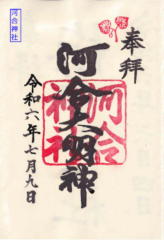 奉拝
河合大明神
河合神社
令和六年七月九日
河合神社